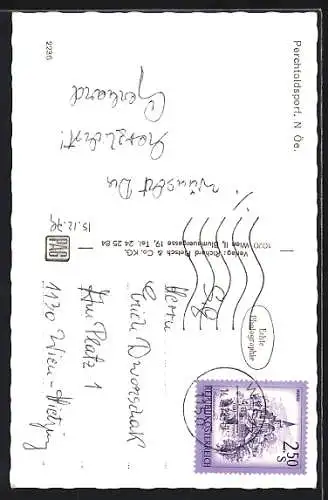 Perchtoldsdorf, N Öe.
2236
15.12.76
wünscht Dir
herzlichst!
Gerhard
PAG
Verlag: Richard Pietsch & Co. KG.
1020 Wien II, Blumauergasse 19, Tel. 24 25 84
Echte
Photographie
Herrn
Erich Dworschak
Am Platz 1
1130 Wien-Hietzing
2.50
S
REPUBLIK ÖSTERREICH